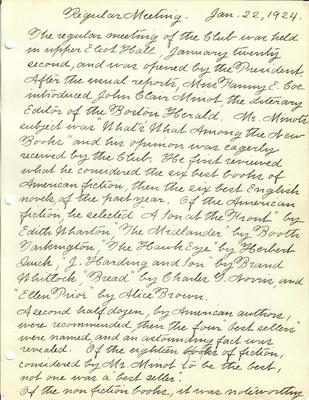 Regular Meeting. Jan. 22, 1924.
The regular meeting of the Club was held
in upper Eliot Hall, January twenty
second, and was opened by the President.
After the usual reports, Miss Fanny E. Coe
introduced John Clair Minot, the Literary
Editor of the Boston Herald. Mr. Minot's
subject was "What's What Among the New
Books" and his opinion was eagerly
received by the Club. He first reviewed
what he considered the six best books of
American fiction, then the six best English
novels, of the past year. Of the American
fiction, he selected "A Son at the Front" by
Edith Wharton, "The Midlander" by Booth
Tarkington, "The Hawkeye" by Herbert
Quick, "J. Harding and Son" by Brand
Whitlock, "Bread" by Charles G. Norris, and
"Ellen Prior" by Alice Brown.
A second half dozen, by American authors,
were recommended, then the four "best sellers"
were named, and an astounding fact was
revealed. Of the eighteen books of fiction,
considered by Mr. Minot to be the best,
not one was a "best seller."
Of the non fiction books, it was noteworthy